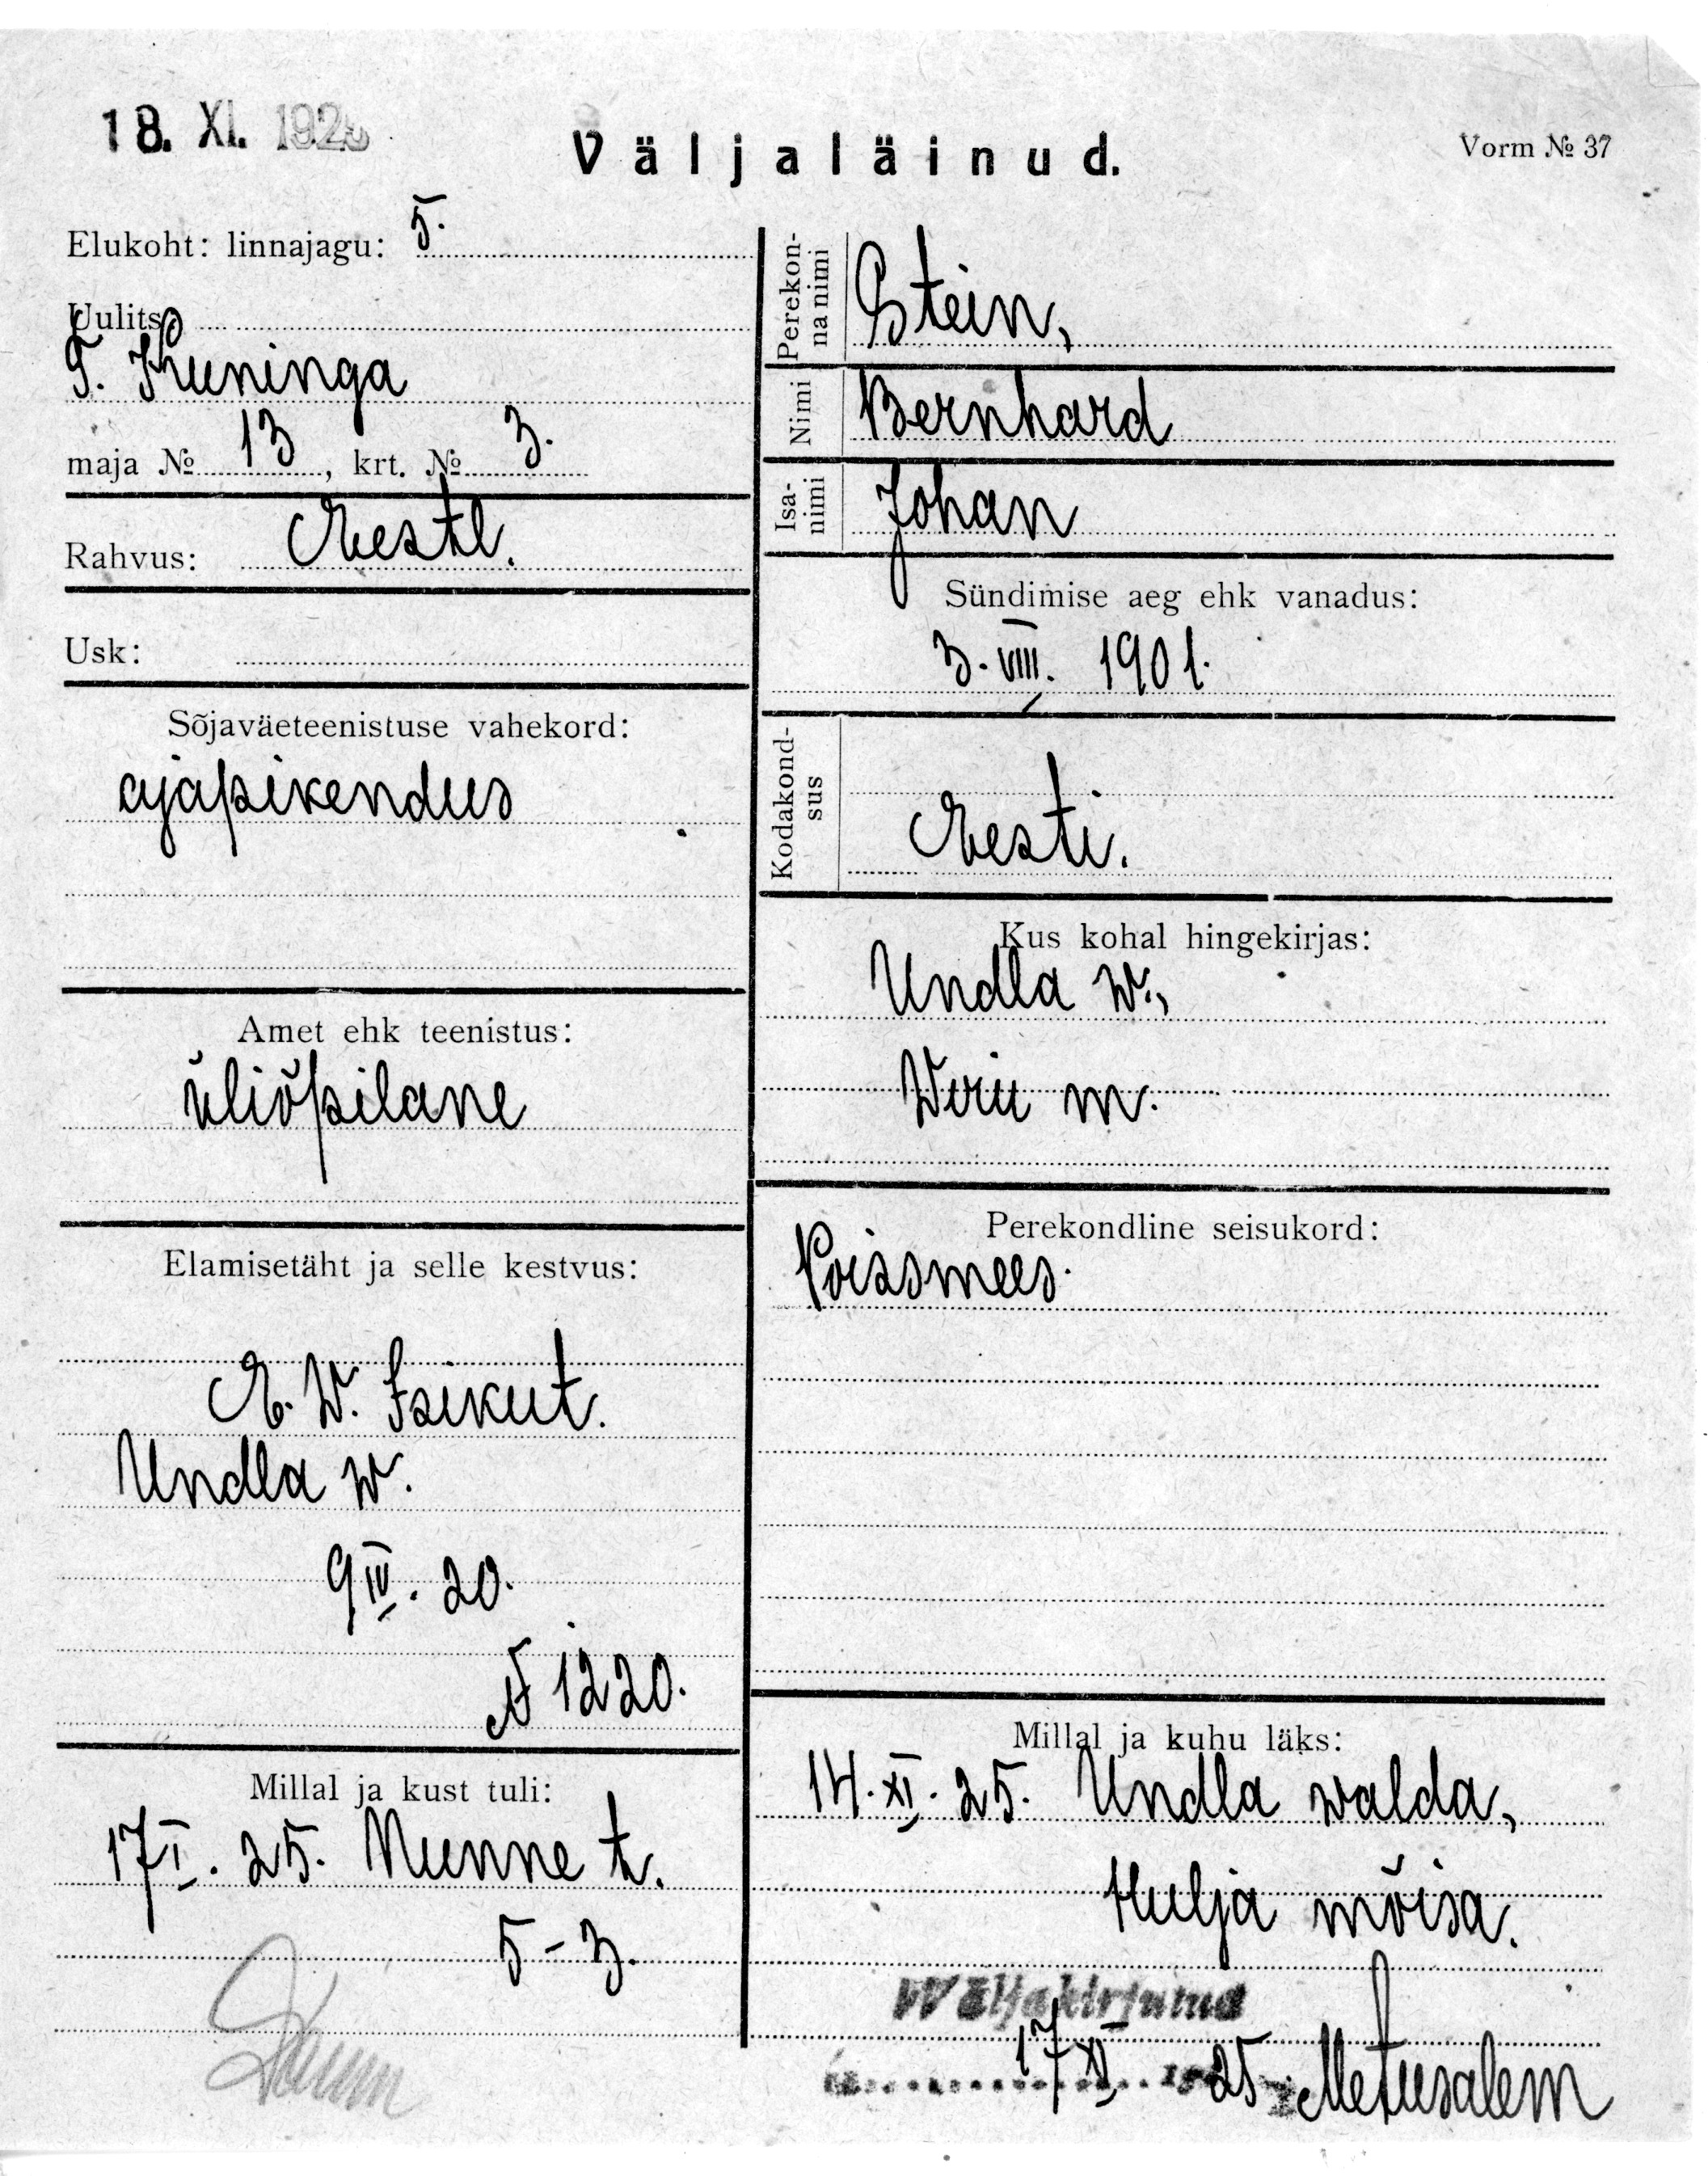 18. XI. 1925
Väljaläinud.
Vorm № 37
Elukoht: linnajagu: 5.
Uulits
T. Kuninga
maja № 13, krt. № 3.
Rahvus: Eestl.
Usk:
Sõjaväeteenistuse vahekord:
ajapikendus
Amet ehk teenistus:
üliõpilane
Elamisetäht ja selle kestvus:
E. W. Isikut.
Undla w.
9 IV. 20.
№ 1220.
Millal ja kust tuli:
17 I. 25. Nunne t.
5-3.
Perekonna nimi
Stein,
Nimi
Bernhard
Isanimi
Johan
Sündimise aeg ehk vanadus:
3. VIII. 1901.
Kodakondsus
Eesti.
Kus kohal hingekirjas:
Undla w.,
Wiru m.
Perekondline seisukord:
Poissmees.
Millal ja kuhu läks:
14. XI. 25. Undla walda,
Hulja mõisa.
Wäljakirjutud
17 XI 25 Metusalem